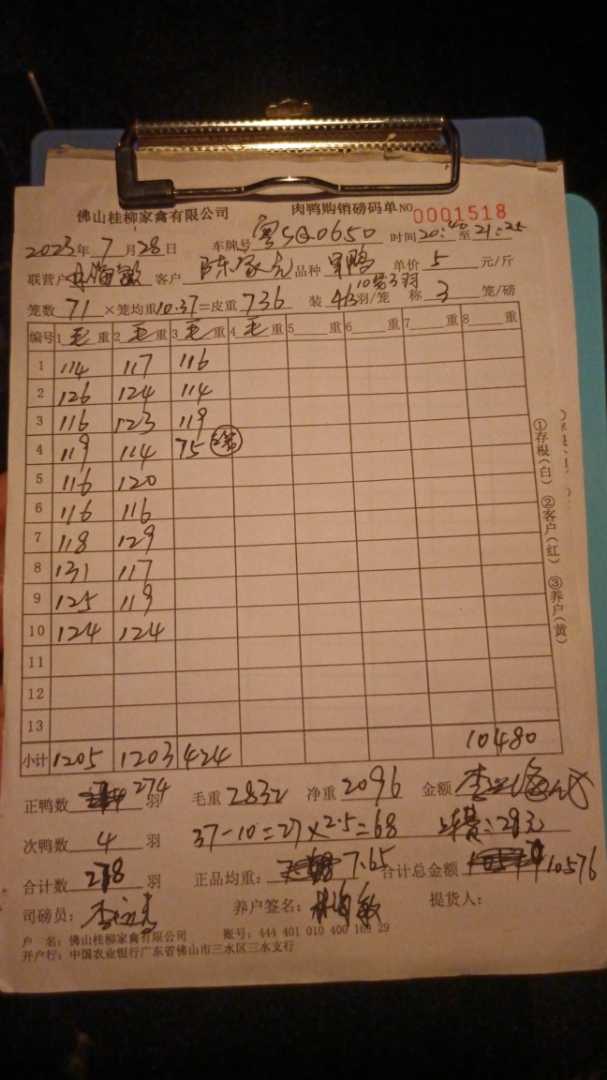 佛山桂柳家禽有限公司 肉鸭购销磅码单 NO 0001518
2023年 7月28日 车牌号 粤SQ0650 时间20:40至21:25
联营户 客户 陈家元 品种 单价 5 元/斤
笼数 71 ×笼均重10.37=皮重 736 装 4羽/笼 称 3 笼/磅
10笼3羽
编号 1 毛 重 2 毛 重 3 毛 重 4 毛 重 5 重 6 重 7 重 8 重
1 114 117 116
2 126 124 114
3 116 123 119
4 119 114 75 2笼
5 116 120
6 116 116
7 118 129
8 131 117
9 125 119
10 124 124
11
12
13
小计 1205 1203 424 10480
①存根(白) ②客户(红) ③养户(黄)
正鸭数 274 羽 毛重 2832 净重 2096 金额
次鸭数 4 羽 37-10=27×2.5=68 28元
合计数 278 羽 正品均重: 7.65 合计总金额 10576
司磅员: 养户签名: 提货人:
户 名: 佛山桂柳家禽有限公司 账号: 444 401 010 400 29
开户行: 中国农业银行广东省佛山市三水区三水支行